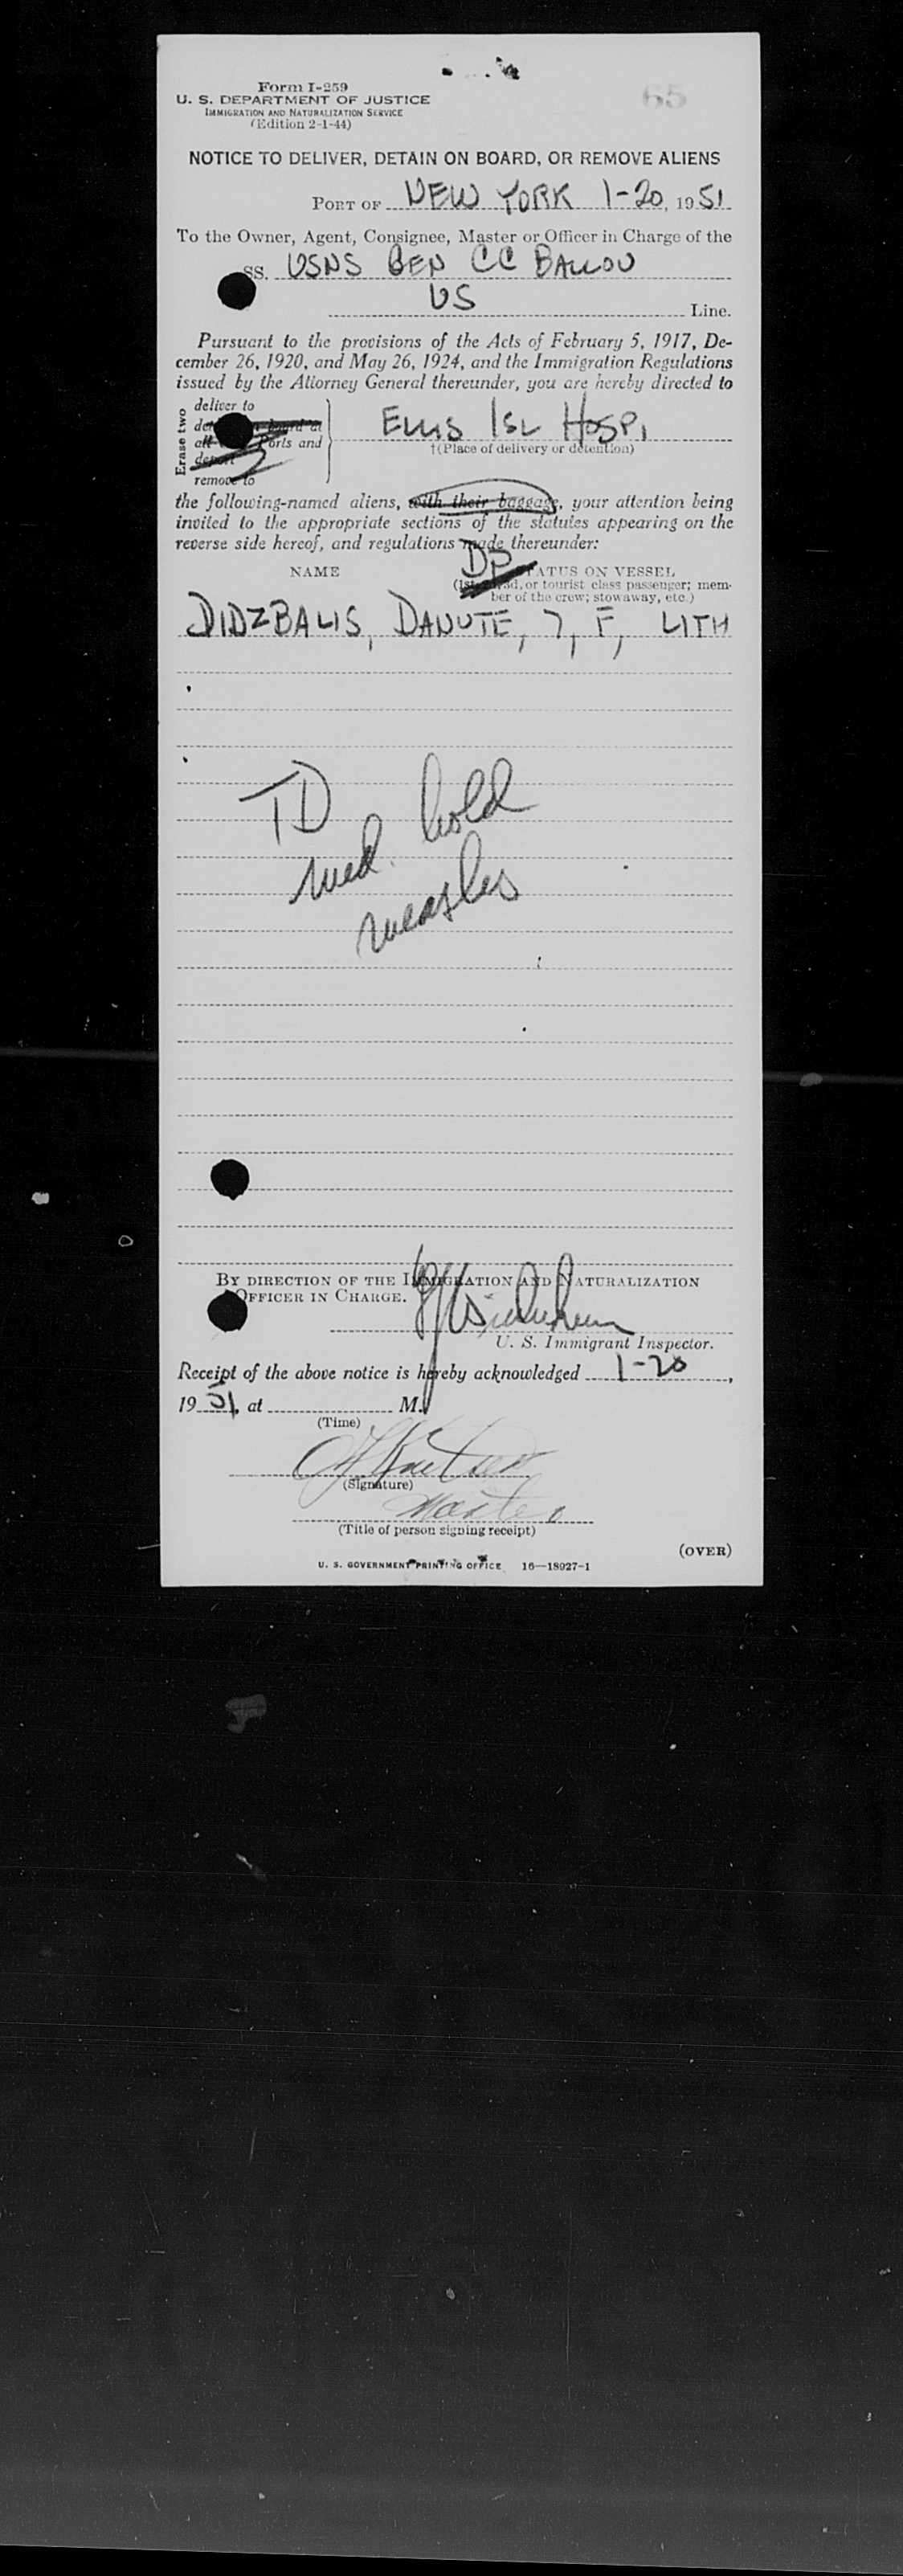 65
Form I-259
U. S. DEPARTMENT OF JUSTICE
IMMIGRATION AND NATURALIZATION SERVICE
(Edition 2-1-44)
NOTICE TO DELIVER, DETAIN ON BOARD, OR REMOVE ALIENS
PORT OF NEW YORK 1-20, 1951
To the Owner, Agent, Consignee, Master or Officer in Charge of the
SS. USNS GEN CC BALLOU
US Line.
Pursuant to the provisions of the Acts of February 5, 1917, De-
cember 26, 1920, and May 26, 1924, and the Immigration Regulations
issued by the Attorney General thereunder, you are hereby directed to
Erase two
deliver to
board at
Ports and
deport
remove to
ELLIS ISL HOSP.
†(Place of delivery or detention)
the following-named aliens, with their baggage, your attention being
invited to the appropriate sections of the statutes appearing on the
reverse side hereof, and regulations made thereunder:
DP
NAME STATUS ON VESSEL
(1st, or tourist class passenger; mem-
ber of the crew; stowaway, etc.)
DIDZBALIS, DANUTE, 7, F, LITH
TD
med. hold
measles
BY DIRECTION OF THE IMMIGRATION AND NATURALIZATION
OFFICER IN CHARGE.
U. S. Immigrant Inspector.
Receipt of the above notice is hereby acknowledged 1-20,
1951, at M.
(Time)
(Signature)
Master
(Title of person signing receipt)
(OVER)
U. S. GOVERNMENT PRINTING OFFICE 16—18027-1